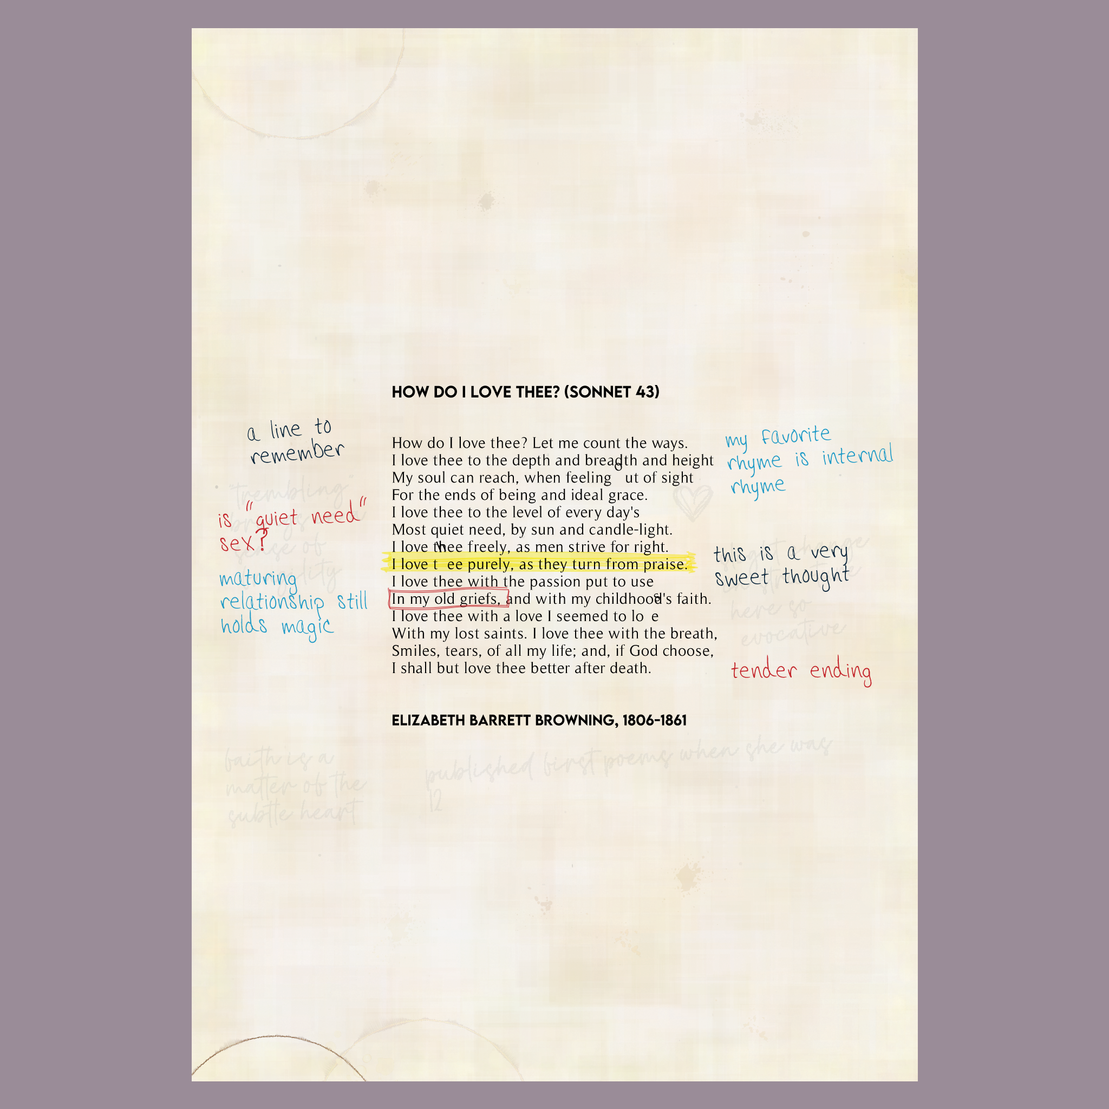 HOW DO I LOVE THEE? (SONNET 43)
a line to
remember
How do I love thee? Let me count the ways.
I love thee to the depth and breadth and height
My soul can reach, when feeling ut of sight
For the ends of being and ideal grace.
I love thee to the level of every day's
Most quiet need, by sun and candle-light.
I love thee freely, as men strive for right.
I love t ee purely, as they turn from praise.
I love thee with the passion put to use
In my old griefs, and with my childhood's faith.
I love thee with a love I seemed to lo e
With my lost saints. I love thee with the breath,
Smiles, tears, of all my life; and, if God choose,
I shall but love thee better after death.
my favorite
rhyme is internal
rhyme
trembling
sense of
is "quiet need"
sex?
maturing
relationship still
holds magic
this is a very
sweet thought
here so
evocative
tender ending
ELIZABETH BARRETT BROWNING, 1806-1861
faith is a
matter of the
subtle heart
published first poems when she was
12